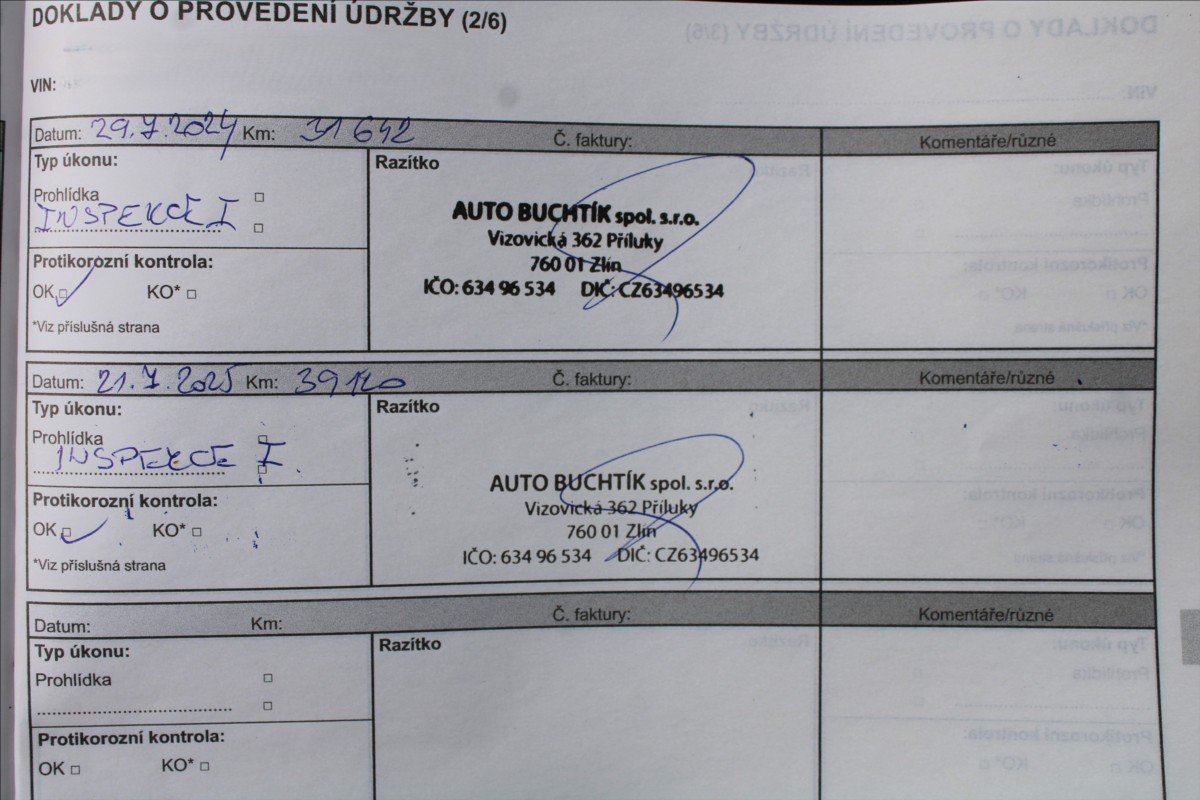 DOKLADY O PROVEDENÍ ÚDRŽBY (2/6)
VIN:
Datum: 29.7.2024 Km: 31 642 Č. faktury: Komentáře/různé
Typ úkonu: Razítko
Prohlídka
INSPEKCE I
AUTO BUCHTÍK spol. s.r.o.
Vizovická 362 Příluky
760 01 Zlín
IČO: 634 96 534 DIČ: CZ63496534
Protikorozní kontrola:
OK KO*
*Viz příslušná strana
Datum: 21.7.2025 Km: 39120 Č. faktury: Komentáře/různé
Typ úkonu: Razítko
Prohlídka
INSPEKCE I.
AUTO BUCHTÍK spol. s.r.o.
Vizovická 362 Příluky
760 01 Zlín
IČO: 634 96 534 DIČ: CZ63496534
Protikorozní kontrola:
OK KO*
*Viz příslušná strana
Datum: Km: Č. faktury: Komentáře/různé
Typ úkonu: Razítko
Prohlídka
Protikorozní kontrola:
OK KO*